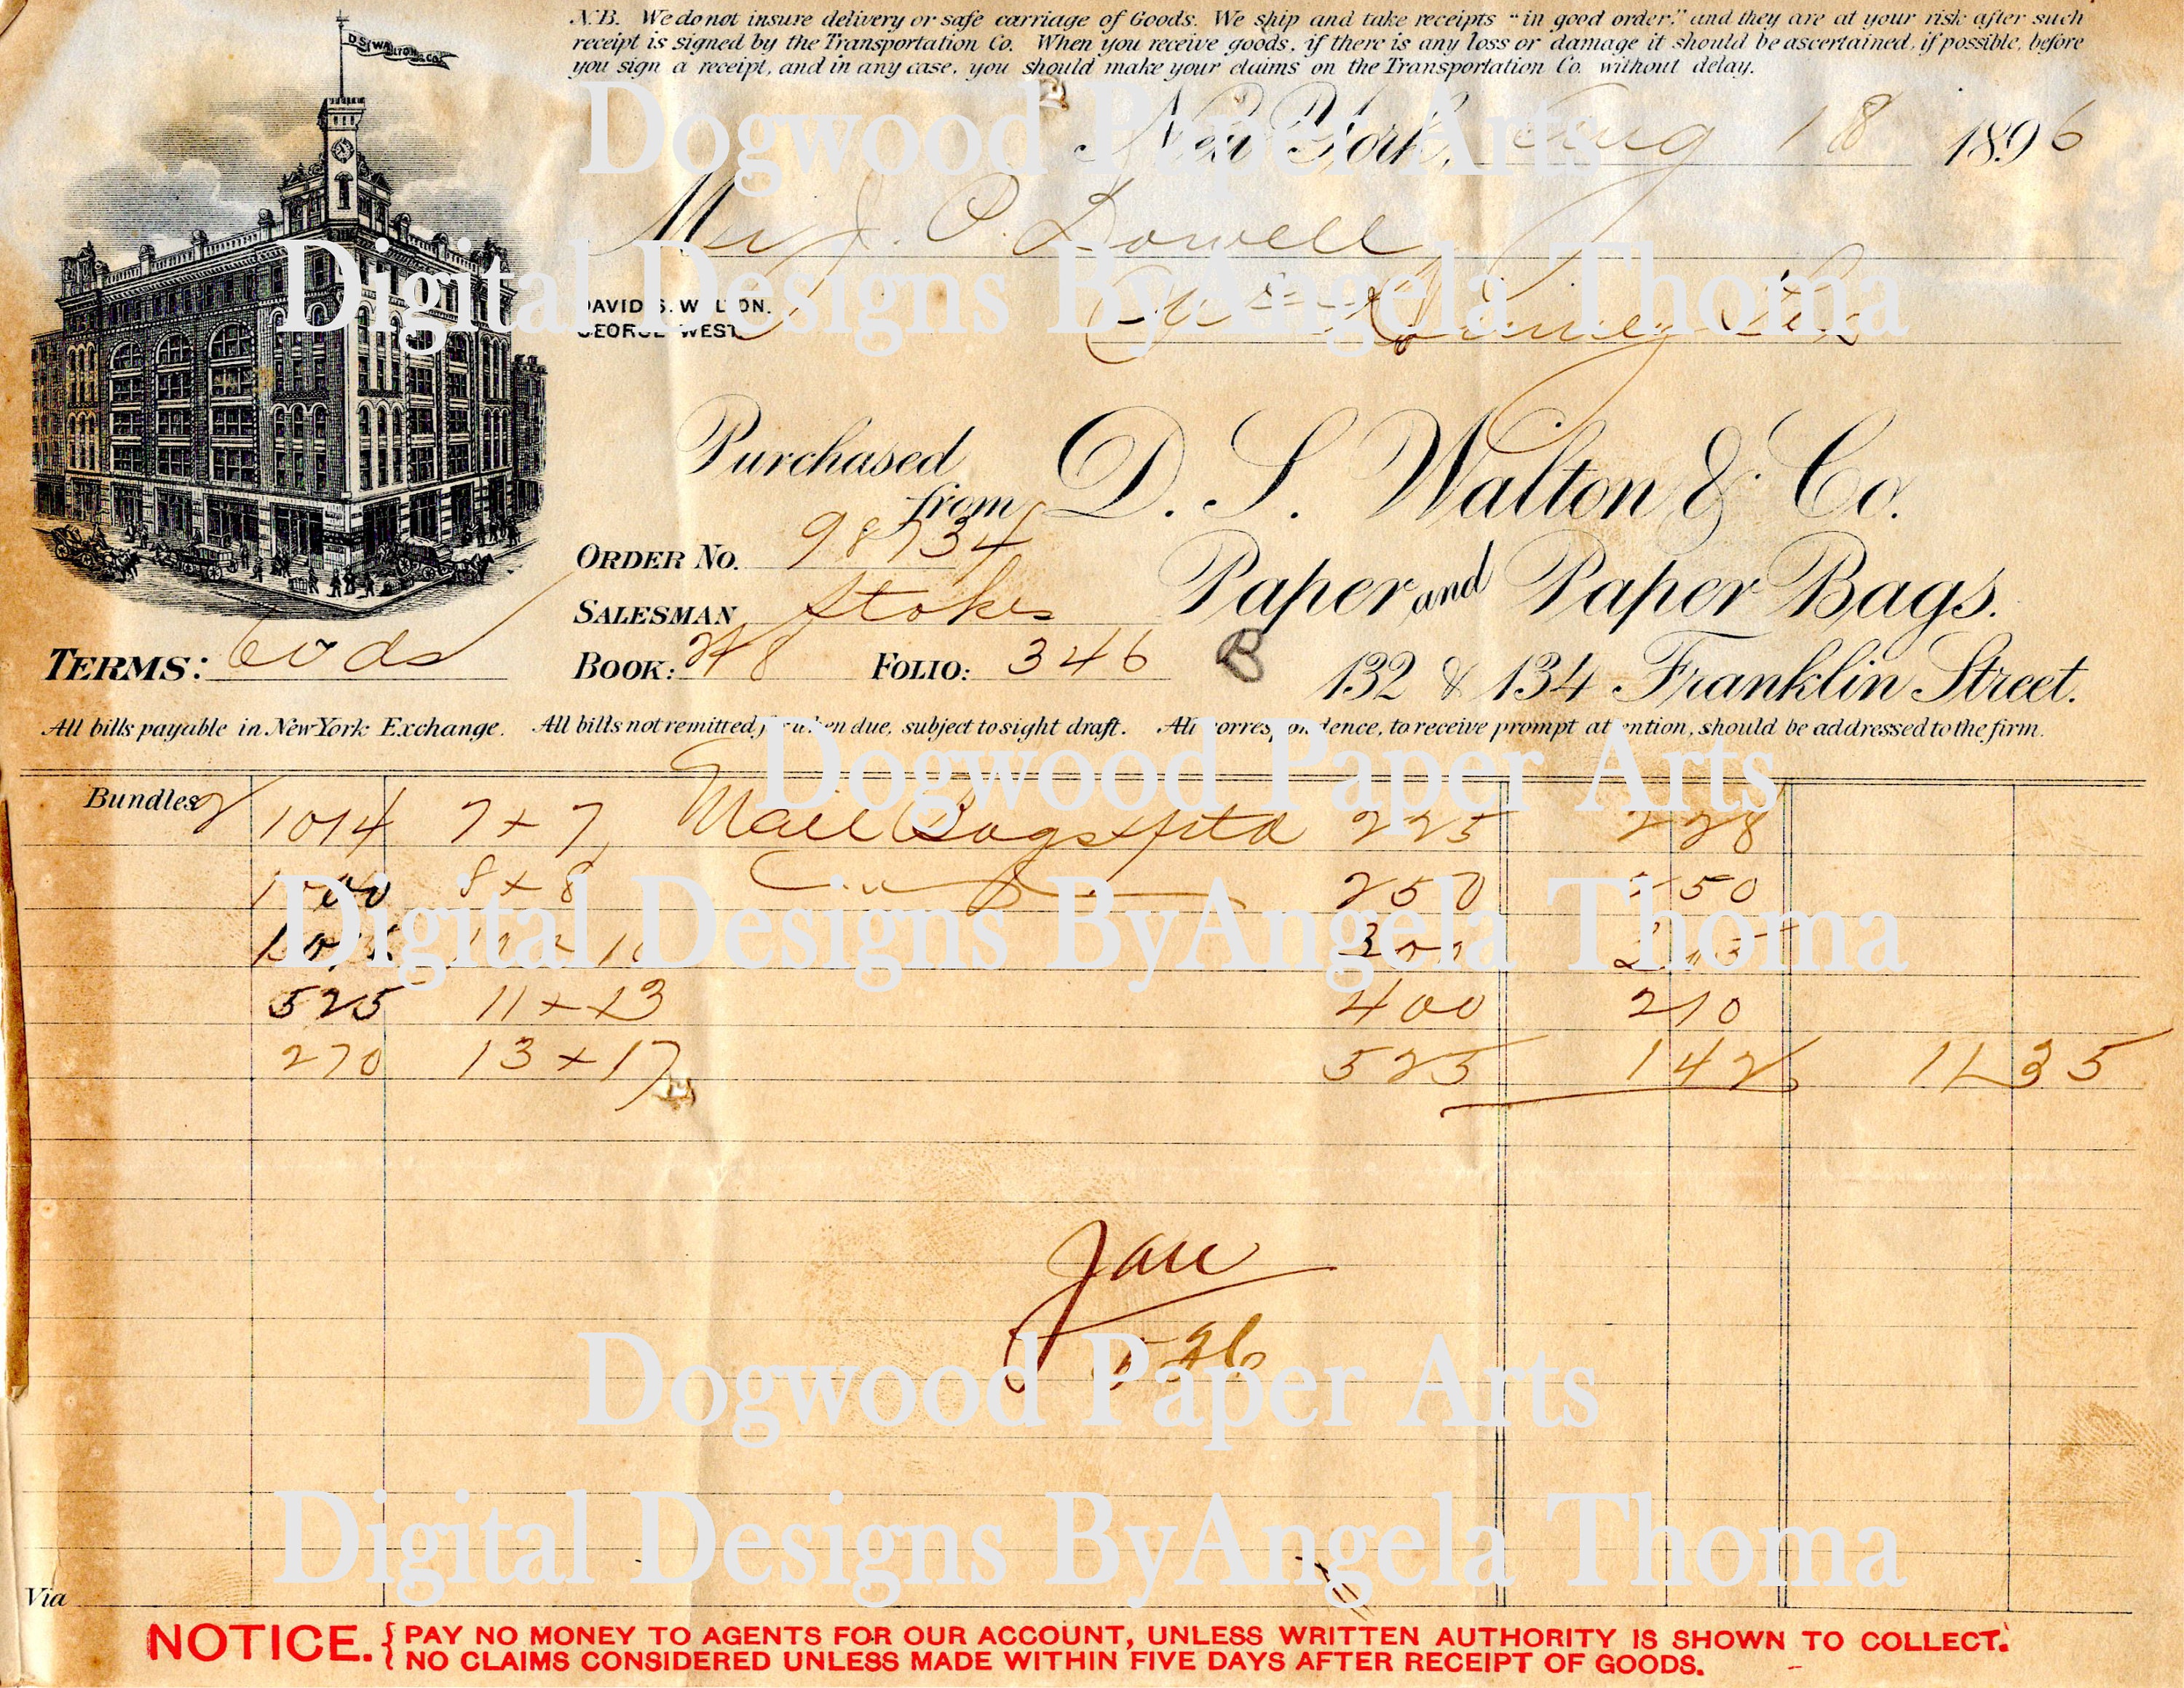 N.B. We do not insure delivery or safe carriage of Goods. We ship and take receipts "in good order," and they are at your risk after such
receipt is signed by the Transportation Co. When you receive goods, if there is any loss or damage it should be ascertained, if possible, before
you sign a receipt, and in any case, you should make your claims on the Transportation Co. without delay.
D.S. WALTON & CO.
Dogwood Paper Arts
New York, Aug 18 1896
J. O. Dowell
Digital Designs ByAngela Thoma
DAVID S. WALTON.
GEORGE WEST.
Purchased from D. S. Walton & Co.
ORDER NO. 98734
Paper and Paper Bags.
SALESMAN Stokes
TERMS: 60 ds
BOOK: 28 FOLIO: 346 B
132 & 134 Franklin Street.
All bills payable in New York Exchange. All bills not remitted for when due, subject to sight draft. All correspondence, to receive prompt attention, should be addressed to the firm.
Dogwood Paper Arts
Bundles 2 1014 7 x 7 Mail Bags 225 228
8 x 8 250 250
Digital Designs ByAngela Thoma
300
525 11 x 13 400 210
270 13 x 17 525 142 1135
Jan
Dogwood Paper Arts
Digital Designs ByAngela Thoma
Via
NOTICE. { PAY NO MONEY TO AGENTS FOR OUR ACCOUNT, UNLESS WRITTEN AUTHORITY IS SHOWN TO COLLECT.
NO CLAIMS CONSIDERED UNLESS MADE WITHIN FIVE DAYS AFTER RECEIPT OF GOODS.